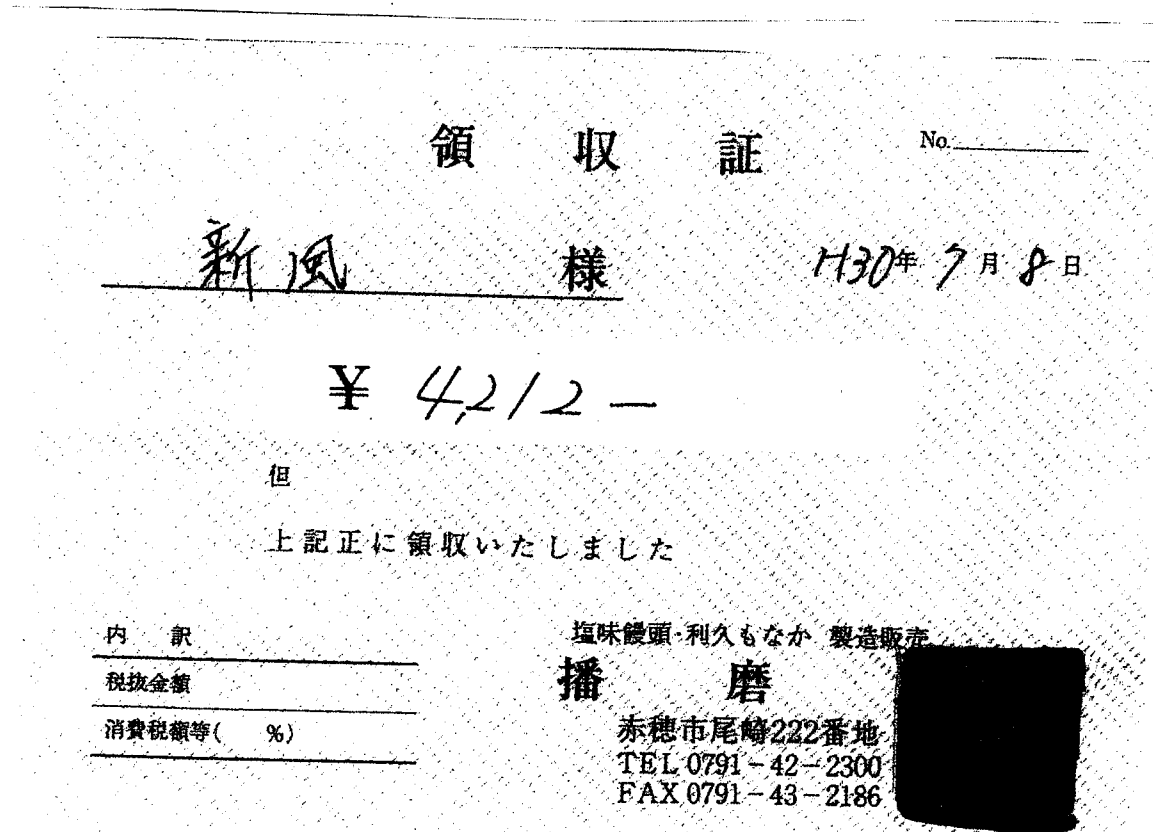 領収証 No.
新風 様 H30年7月8日
¥ 4,212－
但
上記正に領収いたしました
内訳
税抜金額
消費税額等( %)
塩味饅頭・利久もなか 製造販売
播磨
赤穂市尾崎222番地
TEL 0791－42－2300
FAX 0791－43－2186